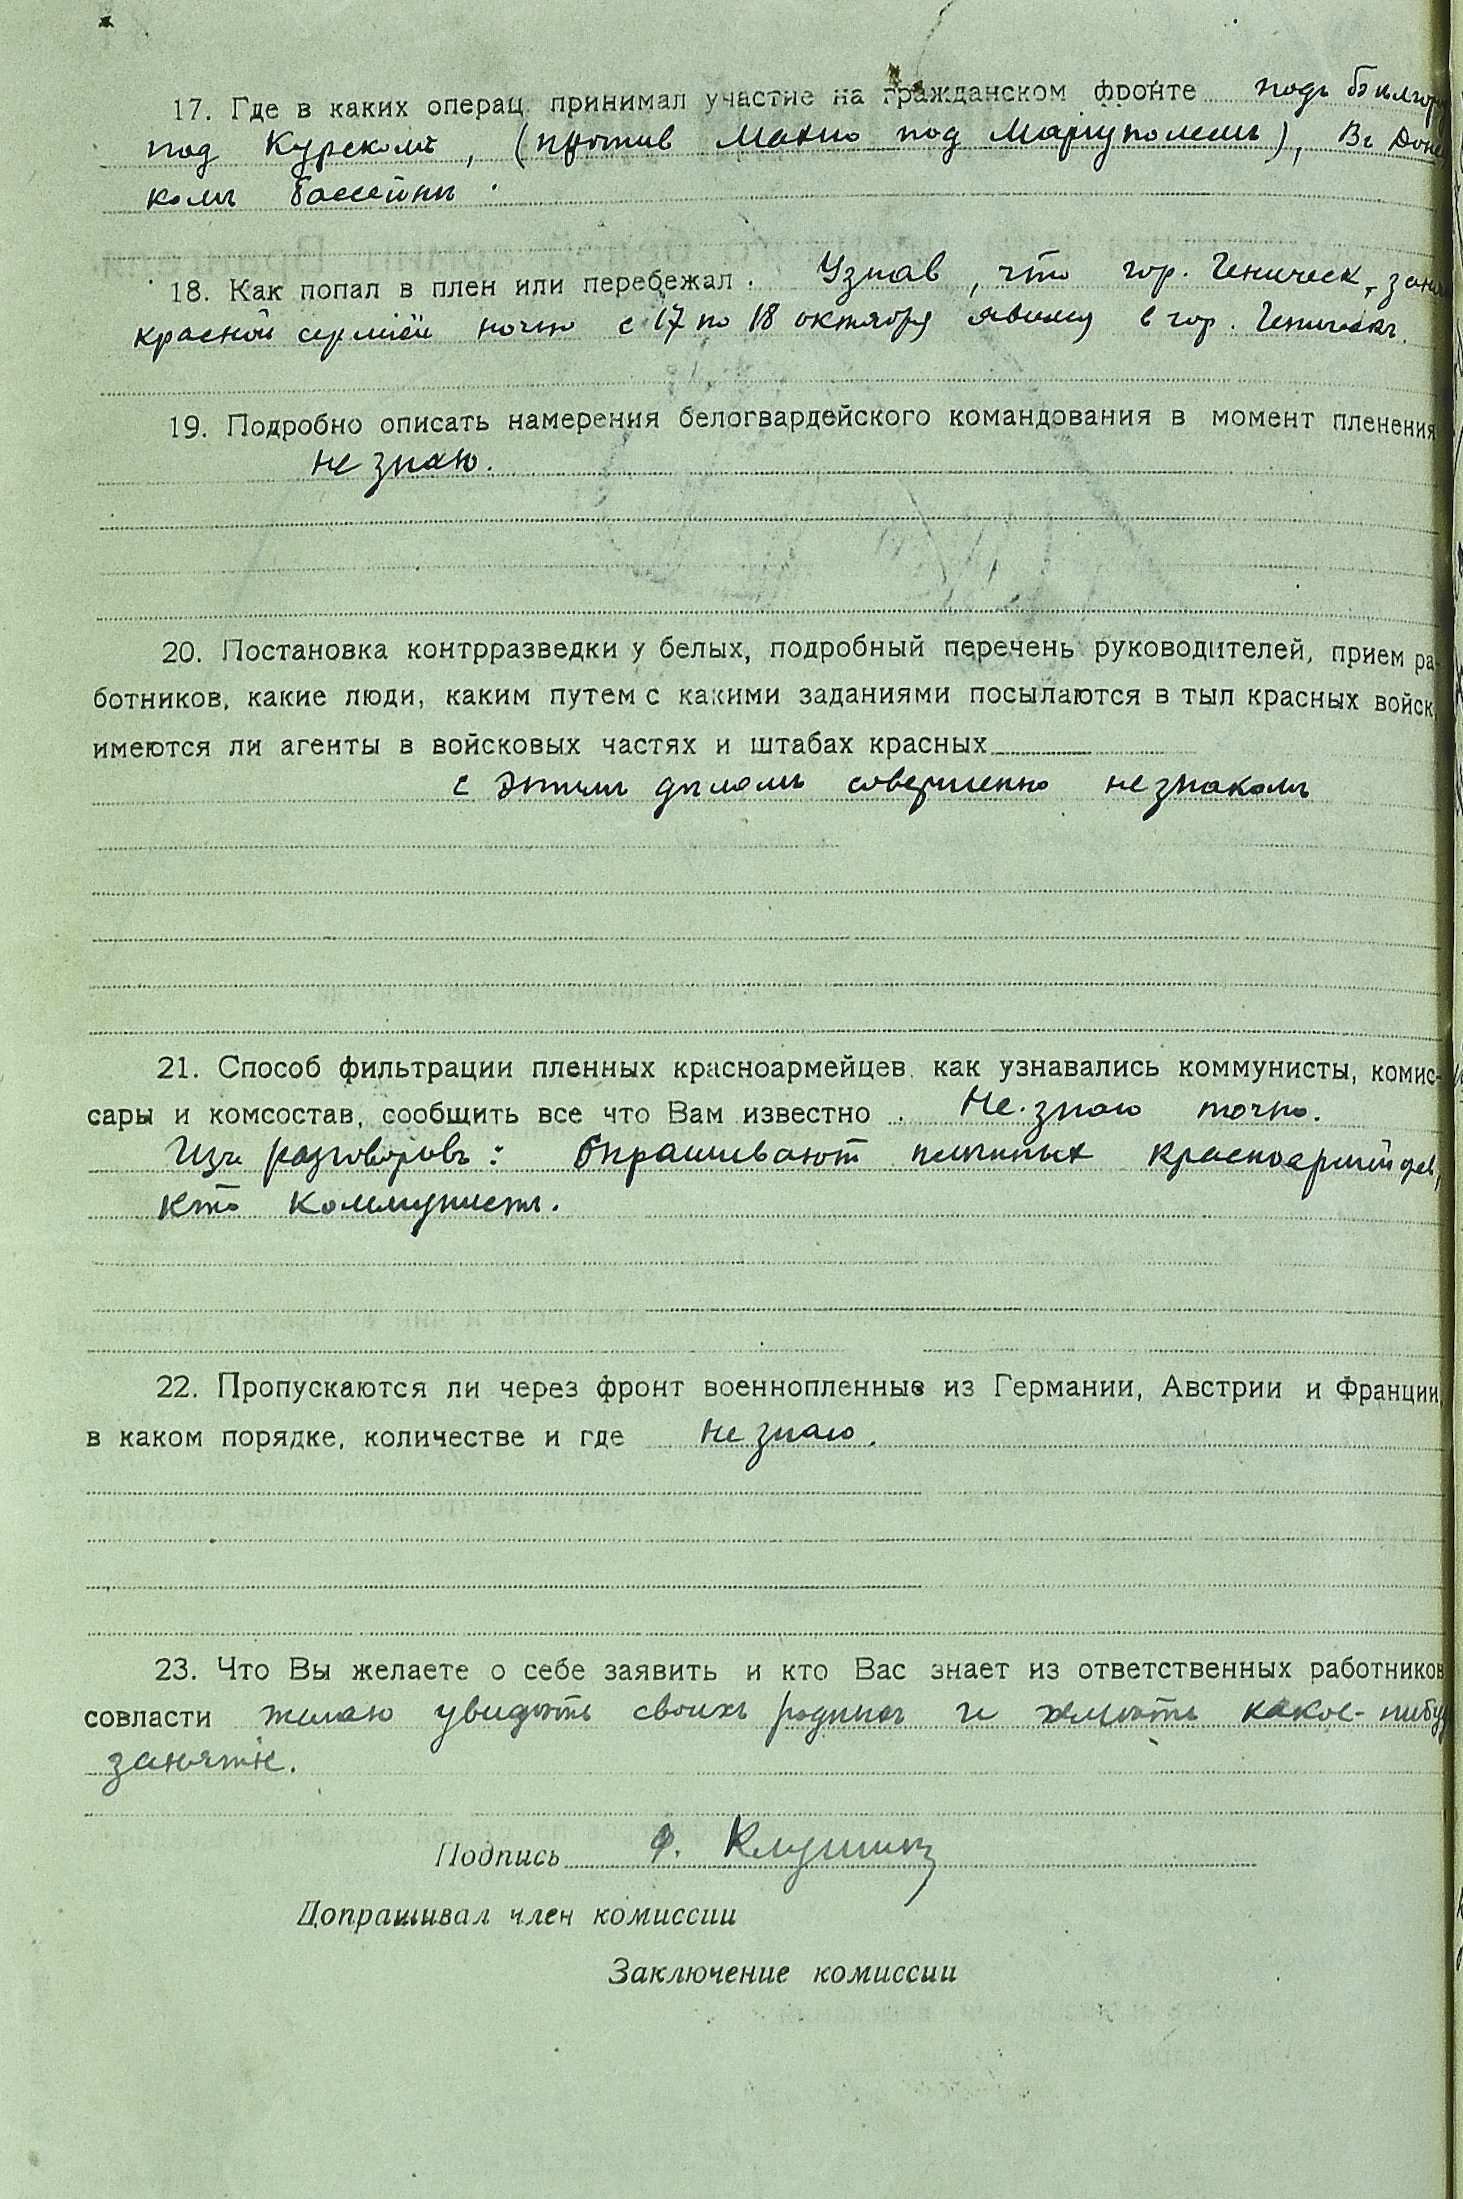 17. Где в каких операц. принимал участие на гражданском фронте подъ Бѣлгор
под Курскомъ, (против Махно под Мариуполемъ), Въ Донец
комъ бассейнѣ.
18. Как попал в плен или перебежал. Узнав, что гор. Геническ, занят
красной арміей ночью с 17 по 18 октября явился в гор. Геническъ.
19. Подробно описать намерения белогвардейского командования в момент пленения
не знаю.
20. Постановка контрразведки у белых, подробный перечень руководителей, прием ра-
ботников, какие люди, каким путем с какими заданиями посылаются в тыл красных войск,
имеются ли агенты в войсковых частях и штабах красных
с этимъ дѣломъ совершенно не знакомъ
21. Способ фильтрации пленных красноармейцев. как узнавались коммунисты, комис-
сары и комсостав, сообщить все что Вам известно . Не знаю точно.
Изъ разговоровъ: Опрашивают плѣнных красноармейцев,
кто коммунистъ.
22. Пропускаются ли через фронт военнопленные из Германии, Австрии и Франции,
в каком порядке, количестве и где не знаю.
23. Что Вы желаете о себе заявить и кто Вас знает из ответственных работников
совласти желаю увидѣть своихъ родныхъ и имѣть какое-нибуд
занятіе.
Подпись Ф. Клушинъ
Допрашивал член комиссии
Заключение комиссии